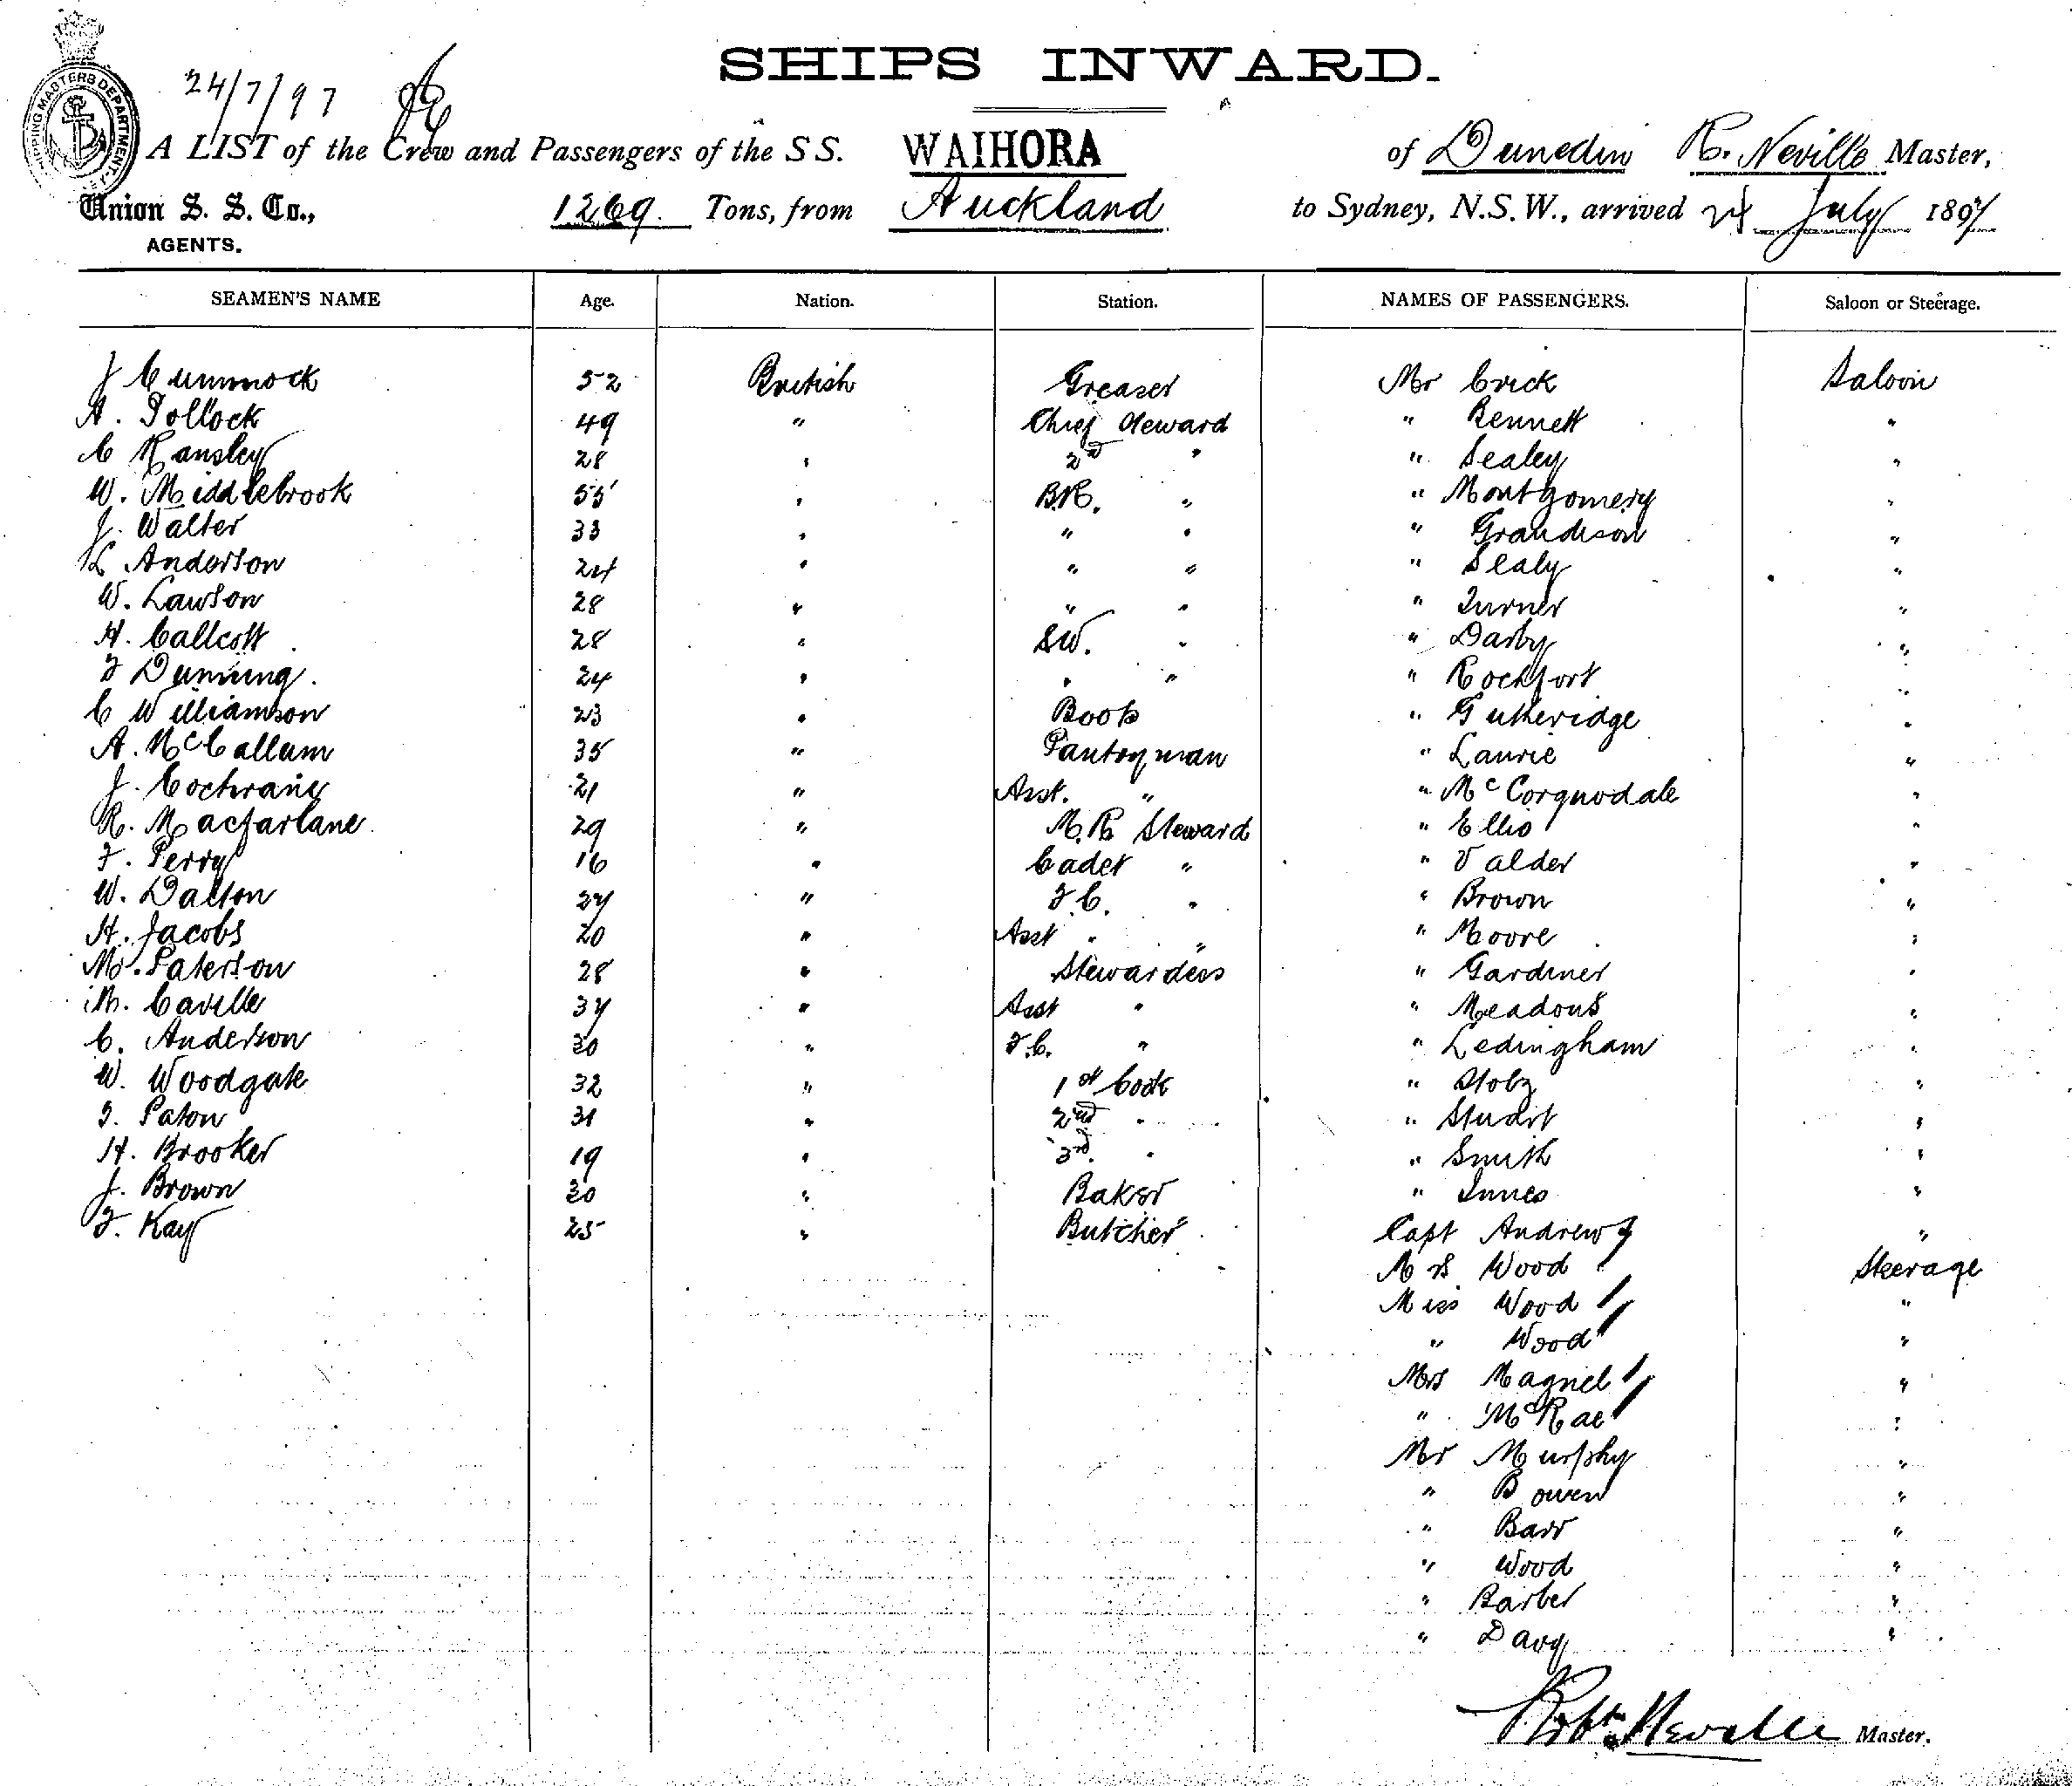 SHIPS INWARD.
24/7/97
SHIPPING MASTERS DEPARTMENT
A LIST of the Crew and Passengers of the S S. WAIHORA of Dunedin R. Neville Master,
Union S. S. Co., 1269 Tons, from Auckland to Sydney, N.S.W., arrived 24 July 1897
AGENTS.
SEAMEN'S NAME Age. Nation. Station. NAMES OF PASSENGERS. Saloon or Steerage.
J Cummock 52 British Greaser Mr Crick Saloon
A. Pollock 49 " Chief Steward " Bennett "
C Ransley 28 " 2nd " " Sealey "
W. Middlebrook 55 " B.R. " " Montgomery "
J. Walter 33 " " " " Grandison "
L Anderson 24 " " " " Sealy "
W. Lawson 28 " " " " Turner "
H. Callcott 28 " SW. " " Darby "
F Dunning. 24 " " " " Rochfort "
C Williamson 23 " Boots " Gutheridge "
A. McCallum 35 " Pantryman " Laurie "
J. Cochrane 21 " Asst. " " McCorquodale "
R. Macfarlane 29 " M.R Steward " Ellis "
F. Perry 16 " Cadet " " Valder "
W. Dalton 27 " F.C. " " Brown "
H. Jacobs 20 " Asst " " " Moore "
M. Paterson 28 " Stewardess " Gardiner "
M. Caville 37 " Asst " " Meadows "
C. Anderson 30 " F.C. " " Ledingham "
W. Woodgate 32 " 1st Cook " Stolz "
J. Paton 31 " 2nd " " Studit "
H. Brooker 19 " 3rd. " " Smith "
J. Brown 30 " Baker " Innes "
F. Kay 25 " Butcher Capt Andrew "
Mrs Wood Steerage
Miss Wood "
" Wood "
Mrs Magniel "
" McRae "
Mr Murphy "
" Bowen "
" Barr "
" Wood "
" Barber "
" Davy "
Robt. Neville Master.